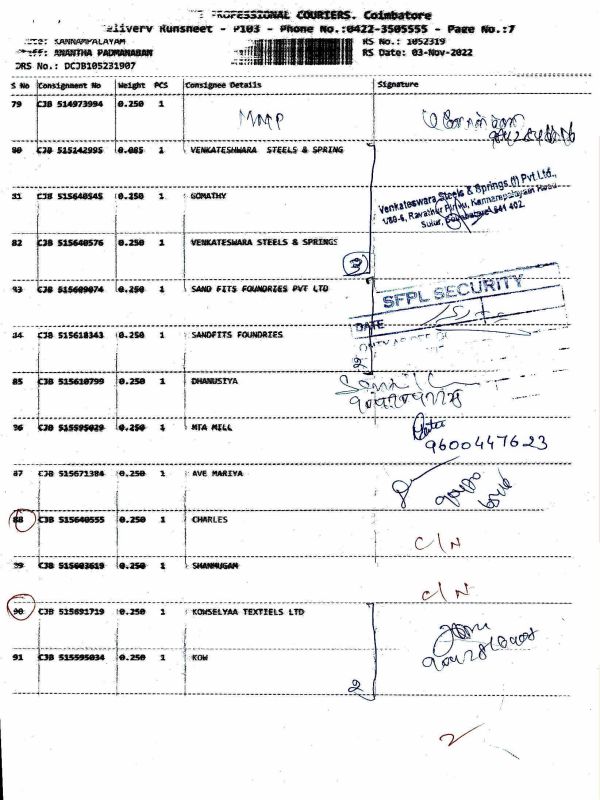 PROFESSIONAL COURIERS. Coimbatore
Delivery Runsheet - P103 - Phone No.:0422-3505555 - Page No.:7
KANNAMPALAYAM
RS No.: 1052319
ANANTHA PADMANABAN
RS Date: 03-Nov-2022
DRS No.: DCJB105231907
S No Consignment No Weight PCS Consignee Details Signature
79 CJB 514973994 0.250 1
80 CJB 515142995 0.085 1 VENKATESHWARA STEELS & SPRING
Venkateswara Steels & Springs (I) Pvt Ltd.,
81 CJB 515640545 0.250 1 GOMATHY
82 CJB 515640576 0.250 1 VENKATESWARA STEELS & SPRINGS
3
83 CJB 515609074 0.250 1 SAND FITS FOUNDRIES PVT LTD
SFPL SECURITY
DATE
84 CJB 515618343 0.250 1 SANDFITS FOUNDRIES
2
85 CJB 515610799 0.250 1 DHANUSIYA
86 CJB 515595029 0.250 1 MTA MILL
9600447623
87 CJB 515671384 0.250 1 AVE MARIYA
88 CJB 515640555 0.250 1 CHARLES
C/N
89 CJB 515603619 0.250 1 SHANMUGAM
C/N
90 CJB 515691719 0.250 1 KOWSELYAA TEXTIELS LTD
91 CJB 515595034 0.250 1 KOW
2
2